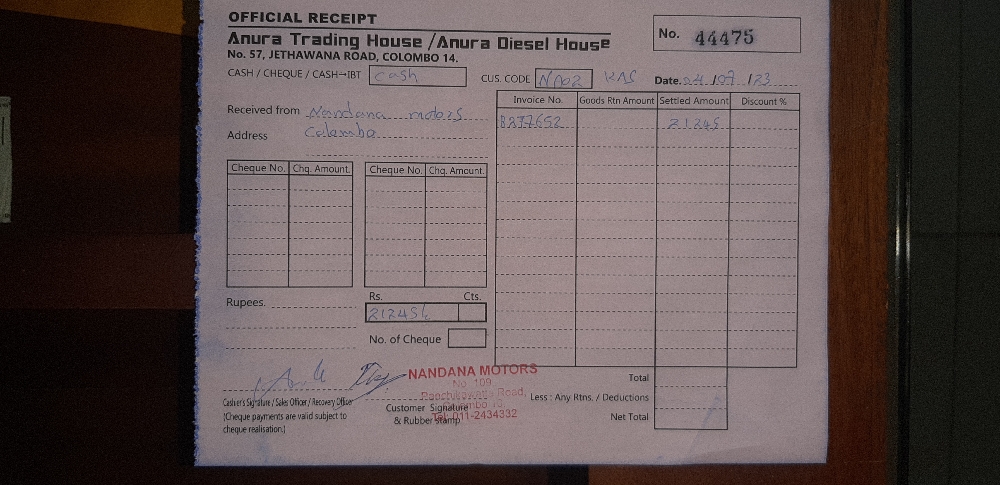 OFFICIAL RECEIPT
Anura Trading House / Anura Diesel House
No. 57, JETHAWANA ROAD, COLOMBO 14.
No. 44475
CASH / CHEQUE / CASH-IBT Cash
CUS. CODE NA02 KAS Date. 24/07/23
Received from Nandana motors
Address Colombo
Invoice No. Goods Rtn Amount Settled Amount Discount %
21245
Cheque No. Chq. Amount. Cheque No. Chq. Amount.
Rupees.
Rs. Cts.
21245/
No. of Cheque
NANDANA MOTORS
No. 109
Panchikawatta Road,
Colombo 10
Tel: 011-2434332
Cashier's Signature / Sales Officer / Recovery Officer
(Cheque payments are valid subject to
cheque realisation.)
Customer Signature
& Rubber stamp
Total
Less : Any Rtns. / Deductions
Net Total